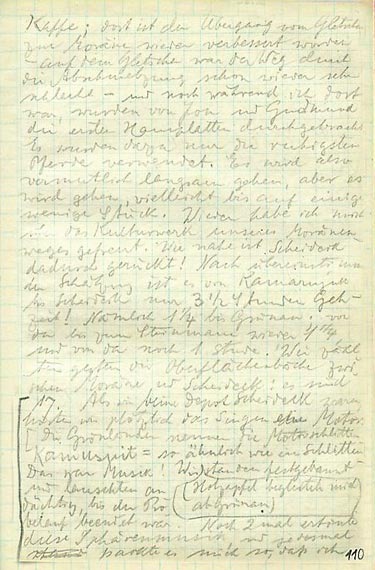 Kaffe; dort ist der Übergang vom Gletscher
zur Moräne wieder verbessert worden
– auf dem Gletscher war der Weg durch
die Abschmelzung schon wieder sehr
schlecht – und noch während ich dort
war, wurden von Jon und Gudmund
die ersten Hausplatten durchgebracht
Es wurden dazu nur die ruhigsten
Pferde verwendet. Es wird also
vermutlich langsam gehen, aber es
wird gehen, vielleicht bis auf einige
wenige Stück. Wieder habe ich mich
das Kulturwerk unseres Moränen
weges gefreut. Wie nahe ist Scheideck
dadurch gerückt! Nach
der Schätzung ist es von Kamarujuk
bis Scheideck nur 3½ Stunden Geh
zeit! Nämlich 1¼ bis Grönau, von
da bis zum wieder 1¼
und von da noch 1 Stunde. Wir
gestern die
schen Moräne und Scheideck: es sind
17. Als wir beim Depot Scheideck waren
hörten wir plötzlich das Singen Motor
(die Grönländer nennen die Motorschlitten
Kamiuspit = so ähnlich wie ein Schlitten)
Das war Musik! Wir standen festgebannt
und lauschten an (Holzapfel begleitete mich
dächtig, bis der Pro ab Grönau)
belauf beendet war. Noch 2 mal ertönte
diese Sphärenmusik und jedesmal
packte es mich so, daß ich
110